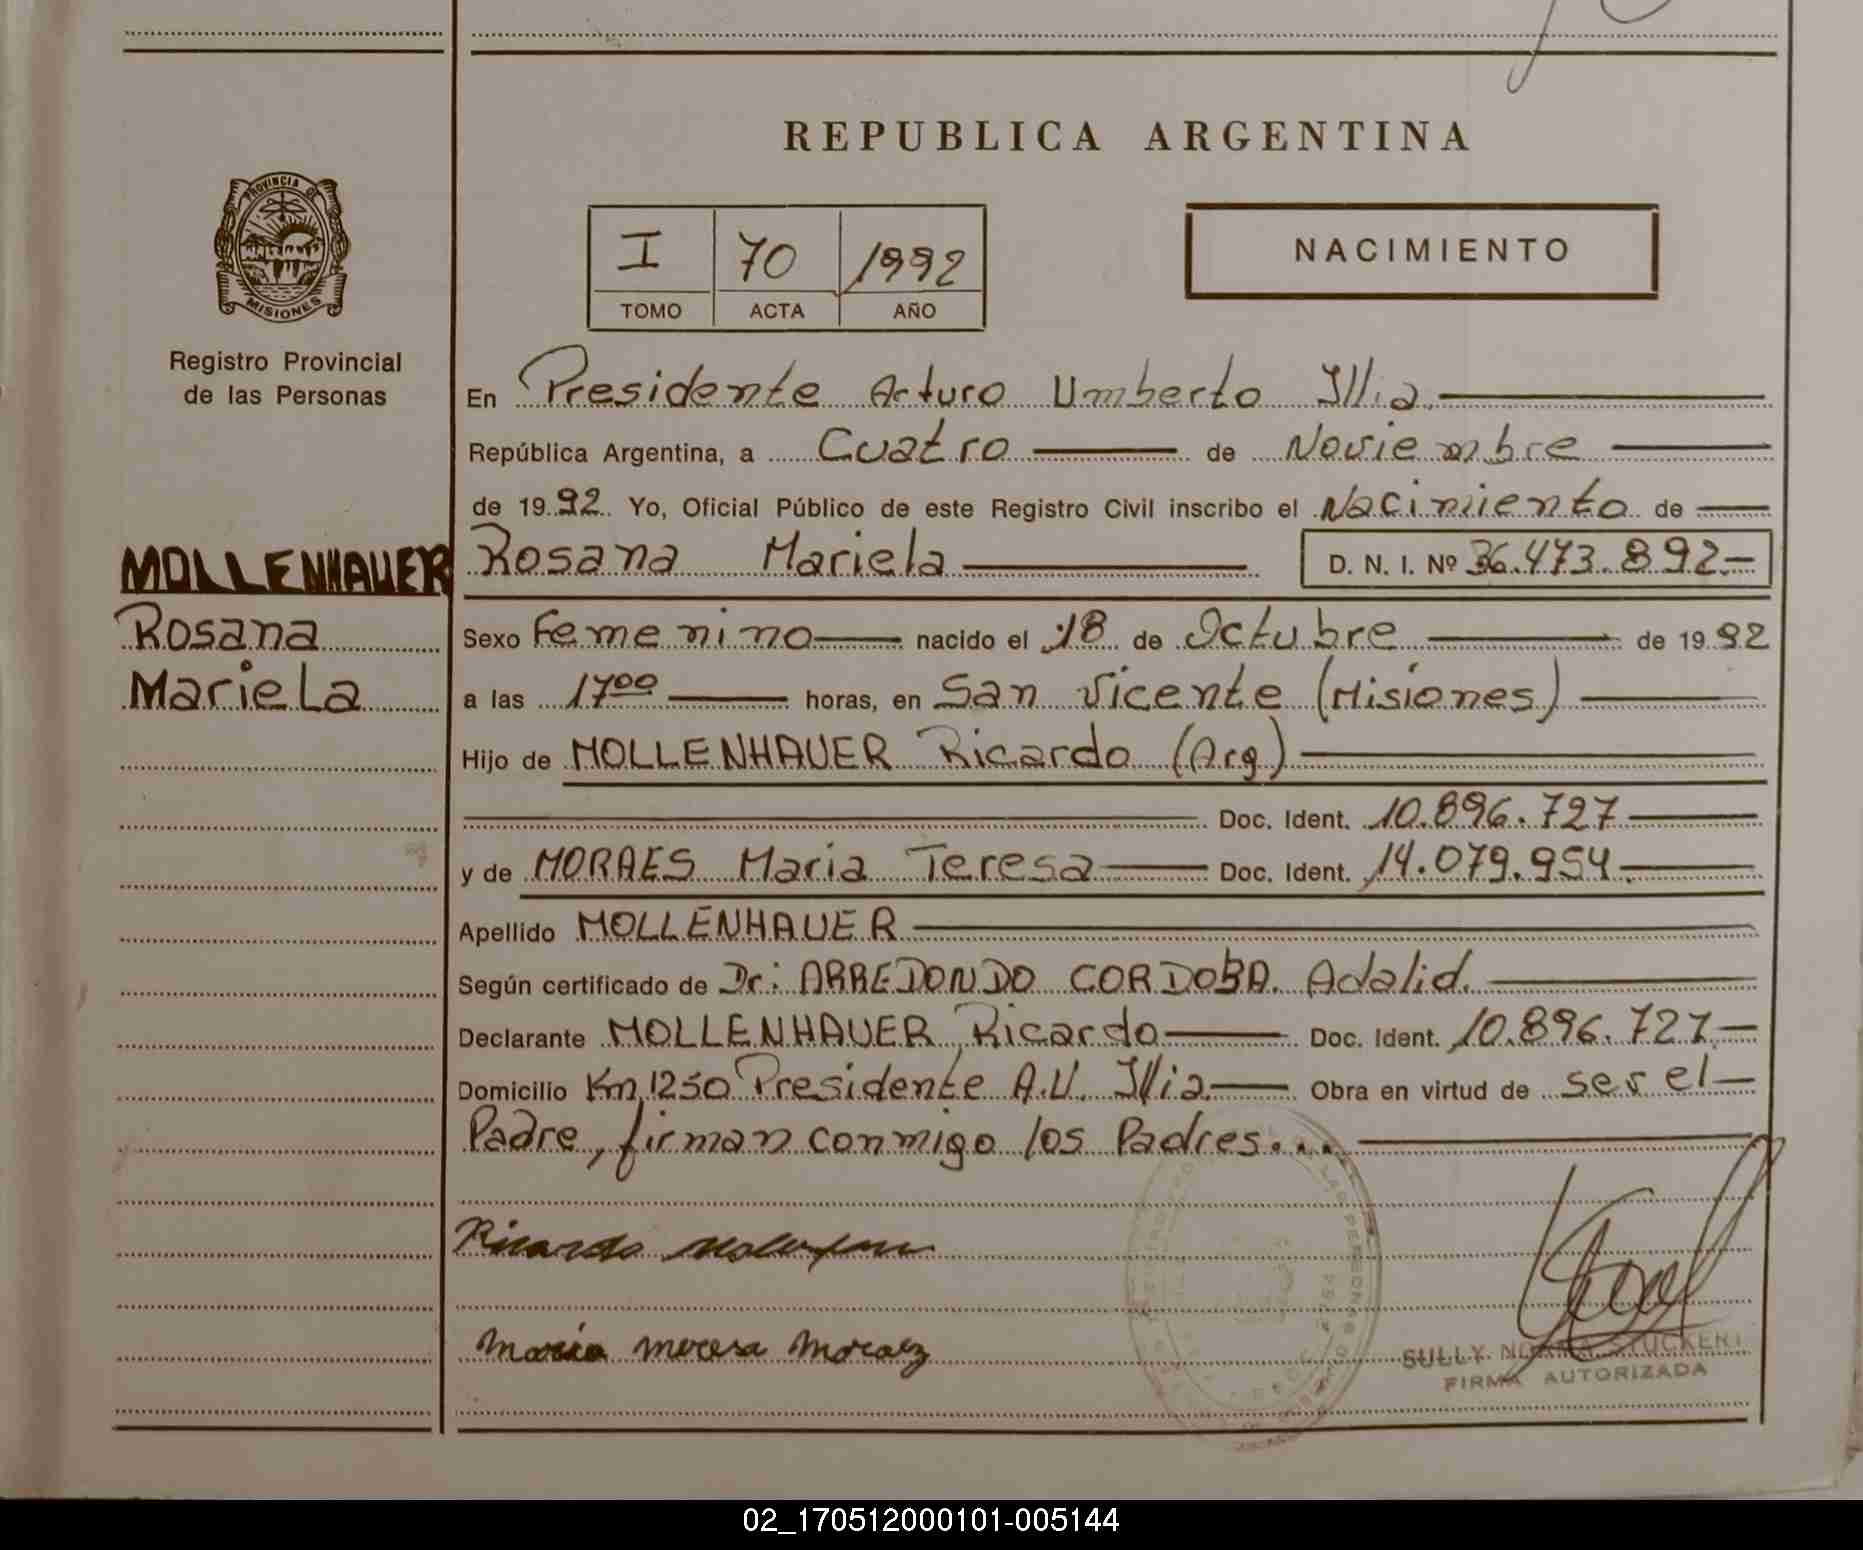 REPUBLICA ARGENTINA
PROVINCIA DE
MISIONES
Registro Provincial
de las Personas
I 70 1992
TOMO ACTA AÑO
NACIMIENTO
En Presidente Arturo Umberto Illia
República Argentina, a Cuatro de Noviembre
de 1992 Yo, Oficial Público de este Registro Civil inscribo el Nacimiento de
MOLLENHAUER
Rosana
Mariela
Rosana Mariela D. N. I. Nº 36.473.892.-
Sexo Femenino nacido el 18 de Octubre de 1992
a las 17 00 horas, en San Vicente (Misiones)
Hijo de MOLLENHAUER Ricardo (Arg)
Doc. Ident. 10.896.727
y de MORAES Maria Teresa Doc. Ident. 14.079.954.
Apellido MOLLENHAUER
Según certificado de Dr: ARREDONDO CORDOBA. Adalid.
Declarante MOLLENHAUER Ricardo Doc. Ident. 10.896.727.-
Domicilio Km 1250 Presidente A.U. Illia. Obra en virtud de ser el
Padre, firman conmigo los Padres...
Ricardo
Maria Moraez
SULLY
FIRMA AUTORIZADA
02_170512000101-005144